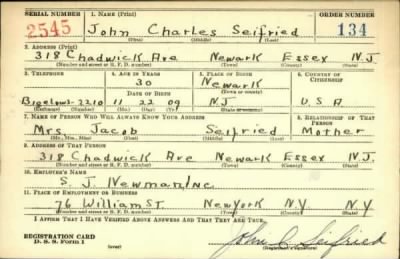 SERIAL NUMBER 1. NAME (Print) ORDER NUMBER
2545 John Charles Seifried 134
(First) (Middle) (Last)
2. ADDRESS (Print)
318 Chadwick Ave Newark Essex N.J.
(Number and street or R. F. D. number) (Town) (County) (State)
3. TELEPHONE 4. AGE IN YEARS 5. PLACE OF BIRTH 6. COUNTRY OF CITIZENSHIP
30 Newark
DATE OF BIRTH (Town or county)
Bigelow 3-2210 11 22 09 N.J. U.S.A
(Exchange) (Number) (Mo.) (Day) (Yr.) (State or country)
7. NAME OF PERSON WHO WILL ALWAYS KNOW YOUR ADDRESS 8. RELATIONSHIP OF THAT PERSON
Mrs. Jacob Seifried Mother
(Mr., Mrs., Miss) (First) (Middle) (Last)
9. ADDRESS OF THAT PERSON
318 Chadwick Ave Newark Essex N.J.
(Number and street or R. F. D. number) (Town) (County) (State)
10. EMPLOYER'S NAME
S. J. Newman Inc.
11. PLACE OF EMPLOYMENT OR BUSINESS
76 William St. New York N.Y. N.Y
(Number and street or R. F. D. number) (Town) (County) (State)
I AFFIRM THAT I HAVE VERIFIED ABOVE ANSWERS AND THAT THEY ARE TRUE.
REGISTRATION CARD
D. S. S. Form 1 (over) John C Seifried
(Registrant's signature)